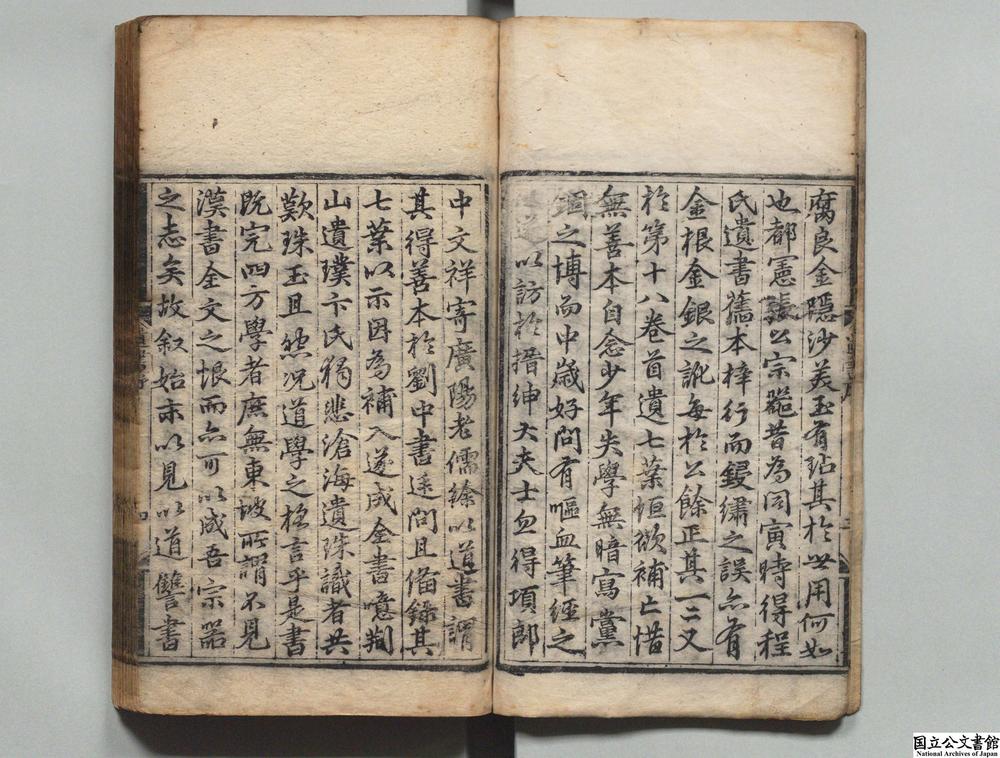 腐良金隱沙美玉有玷其於世用何如
也都憲張公宗器昔為同寅時得程
氏遺書舊本梓行而鋟繡之誤亦有
金根金銀之訛每於公餘正其一二又
於第十八卷首遺七葉恒欲補亡惜
無善本自念少年失學無暗寫黨
錮之博而中歲好問有嘔血筆經之
以訪於搢紳大夫士血得項郎
中文祥寄廣陽老儒餘以道書謂
其得善本於劉中書送問且俻錄其
七葉以示因為補入遂成全書噫荆
山遺璞卞氏稱悲滄海遺珠識者共
歎珠玉且然况道學之格言乎是書
既完四方學者庶無東坡所謂不見
漢書全文之恨而亦可以成吾宗器
之志矣故叙始末以見以道讐書
国立公文書館
National Archives of Japan